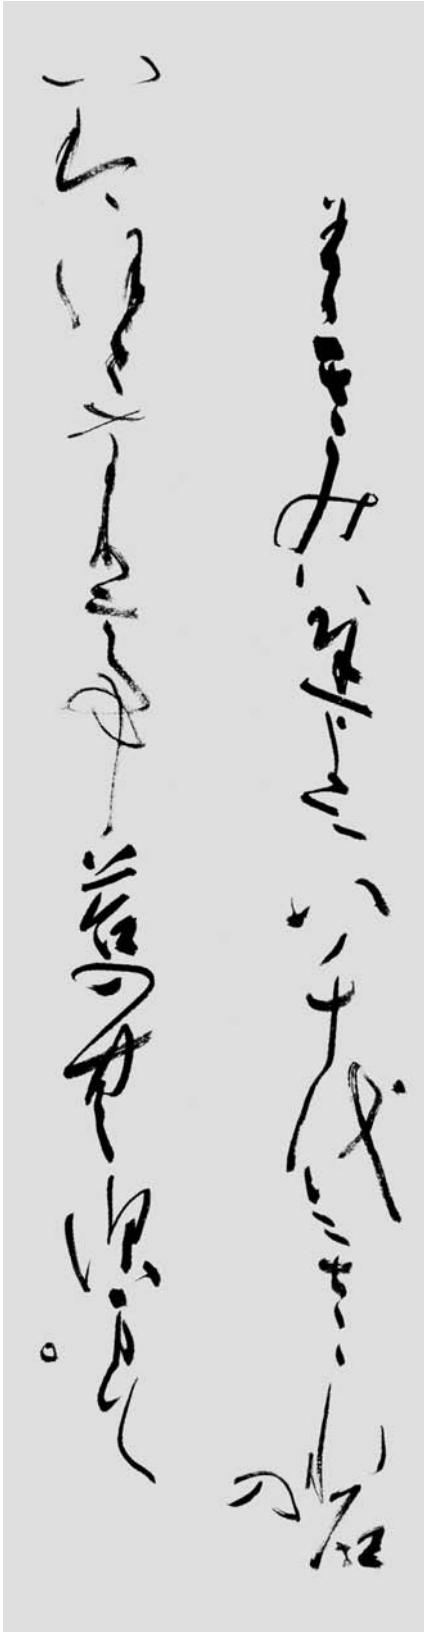 わかきみは千よに八千代にさゝれ石の
いはほとなりて苔のむすまて